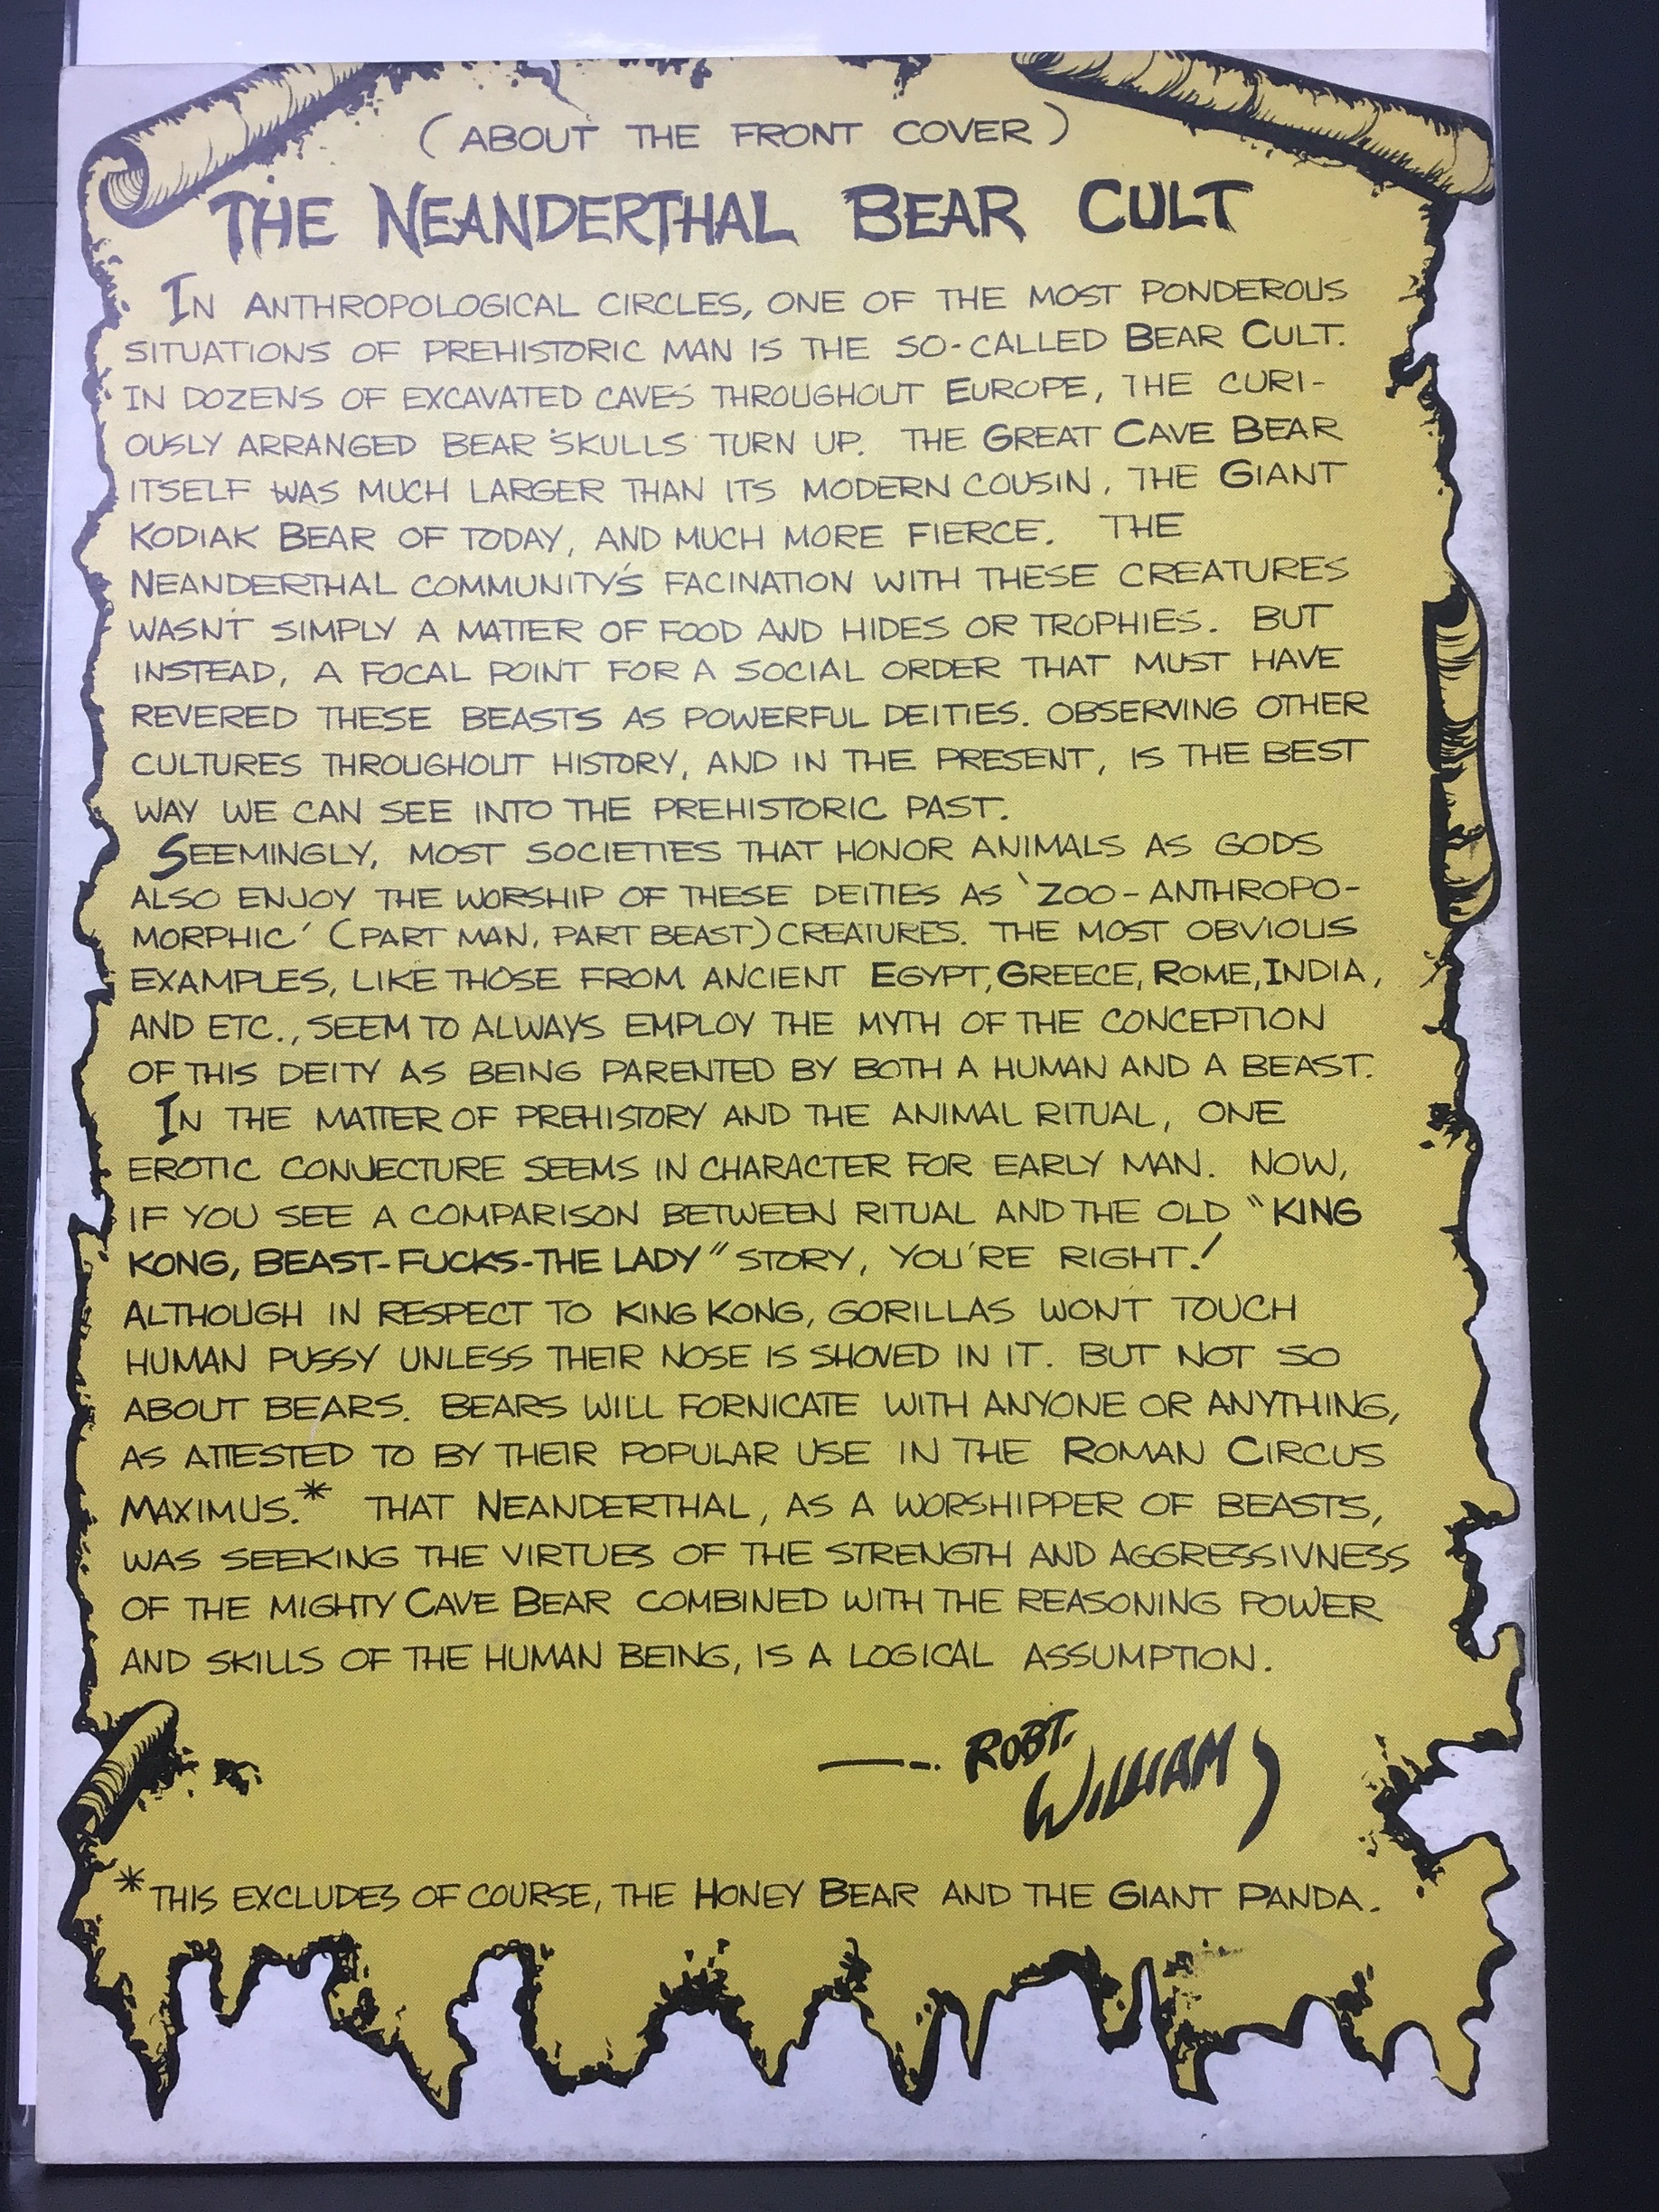 (ABOUT THE FRONT COVER)
THE NEANDERTHAL BEAR CULT
IN ANTHROPOLOGICAL CIRCLES, ONE OF THE MOST PONDEROUS
SITUATIONS OF PREHISTORIC MAN IS THE SO-CALLED BEAR CULT.
IN DOZENS OF EXCAVATED CAVES THROUGHOUT EUROPE, THE CURI-
OUSLY ARRANGED BEAR SKULLS TURN UP. THE GREAT CAVE BEAR
ITSELF WAS MUCH LARGER THAN ITS MODERN COUSIN, THE GIANT
KODIAK BEAR OF TODAY, AND MUCH MORE FIERCE. THE
NEANDERTHAL COMMUNITY'S FACINATION WITH THESE CREATURES
WASN'T SIMPLY A MATTER OF FOOD AND HIDES OR TROPHIES. BUT
INSTEAD, A FOCAL POINT FOR A SOCIAL ORDER THAT MUST HAVE
REVERED THESE BEASTS AS POWERFUL DEITIES. OBSERVING OTHER
CULTURES THROUGHOUT HISTORY, AND IN THE PRESENT, IS THE BEST
WAY WE CAN SEE INTO THE PREHISTORIC PAST.
SEEMINGLY, MOST SOCIETIES THAT HONOR ANIMALS AS GODS
ALSO ENJOY THE WORSHIP OF THESE DEITIES AS 'ZOO-ANTHROPO-
MORPHIC' (PART MAN, PART BEAST) CREATURES. THE MOST OBVIOUS
EXAMPLES, LIKE THOSE FROM ANCIENT EGYPT, GREECE, ROME, INDIA,
AND ETC., SEEM TO ALWAYS EMPLOY THE MYTH OF THE CONCEPTION
OF THIS DEITY AS BEING PARENTED BY BOTH A HUMAN AND A BEAST.
IN THE MATTER OF PREHISTORY AND THE ANIMAL RITUAL, ONE
EROTIC CONJECTURE SEEMS IN CHARACTER FOR EARLY MAN. NOW,
IF YOU SEE A COMPARISON BETWEEN RITUAL AND THE OLD "KING
KONG, BEAST-FUCKS-THE LADY" STORY, YOU'RE RIGHT!
ALTHOUGH IN RESPECT TO KING KONG, GORILLAS WON'T TOUCH
HUMAN PUSSY UNLESS THEIR NOSE IS SHOVED IN IT. BUT NOT SO
ABOUT BEARS. BEARS WILL FORNICATE WITH ANYONE OR ANYTHING,
AS ATTESTED TO BY THEIR POPULAR USE IN THE ROMAN CIRCUS
MAXIMUS.* THAT NEANDERTHAL, AS A WORSHIPPER OF BEASTS,
WAS SEEKING THE VIRTUES OF THE STRENGTH AND AGGRESSIVNESS
OF THE MIGHTY CAVE BEAR COMBINED WITH THE REASONING POWER
AND SKILLS OF THE HUMAN BEING, IS A LOGICAL ASSUMPTION.
—-. ROBT.
WILLIAMS
*THIS EXCLUDES OF COURSE, THE HONEY BEAR AND THE GIANT PANDA.